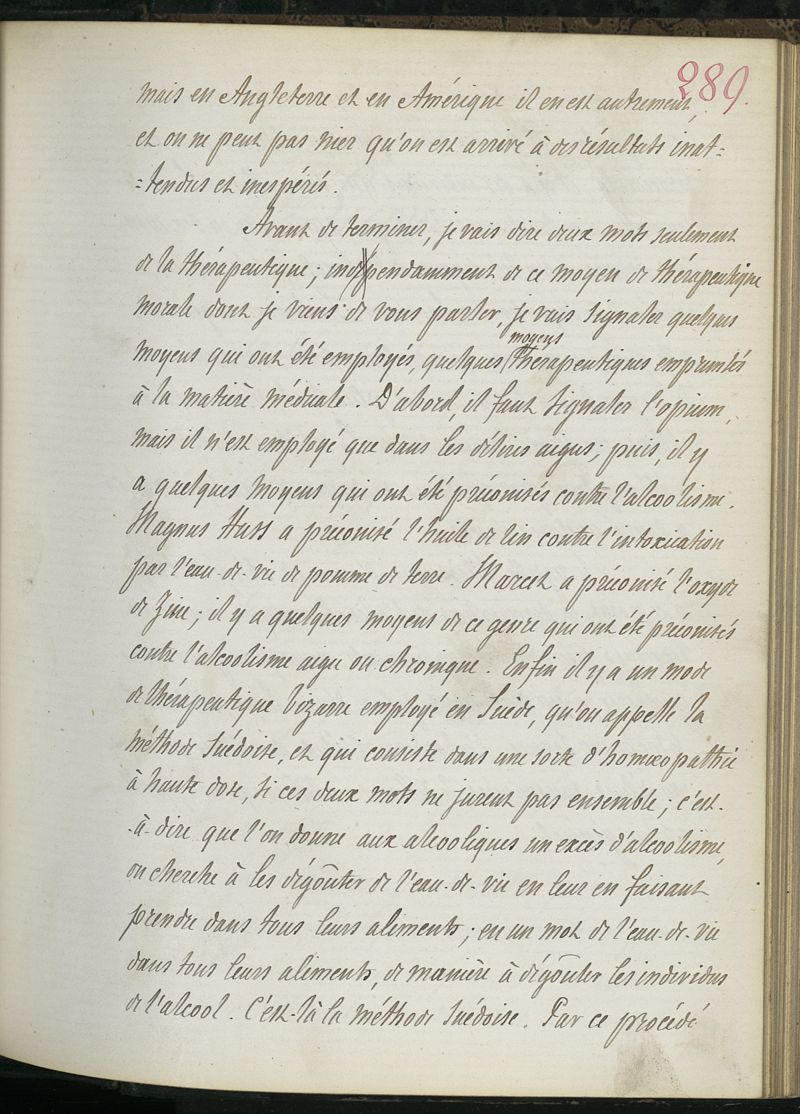 289.
mais en Angleterre et en Amérique il en est autrement,
et on ne peut pas nier qu'on est arrivé à des résultats inat=
=tendus et inespérés.
Avant de terminer, je vais dire deux mots seulement
de la thérapeutique; indépendamment de ce moyen de thérapeutique
morale dont je viens de vous parler, je vais signaler quelques
moyens
moyens qui ont été employés, quelques thérapeutiques empruntés
à la matière médicale. D'abord, il faut signaler l'opium,
mais il n'est employé que dans les délires aigus; puis, il y
a quelques moyens qui ont été préconisés contre l'alcoolisme.
Magnus Huss a préconisé l'huile de lin contre l'intoxication
par l'eau-de-vie de pomme de terre. Marcet a préconisé l'oxyde
de Zinc; il y a quelques moyens de ce genre qui ont été préconisés
contre l'alcoolisme aigu ou chronique. Enfin il y a un mode
de thérapeutique bizarre employé en Suède, qu'on appelle la
méthode Suédoise, et qui consiste dans une sorte d'homœopathie
à haute dose, si ces deux mots ne jurent pas ensemble; c'est-
-à-dire que l'on donne aux alcooliques un excès d'alcoolisme,
on cherche à les dégoûter de l'eau-de-vie en leur en faisant
prendre dans tous leurs aliments; en un mot de l'eau-de-vie
dans tous leurs aliments, de manière à dégoûter les individus
de l'alcool. C'est-là la méthode Suédoise. Par ce procédé